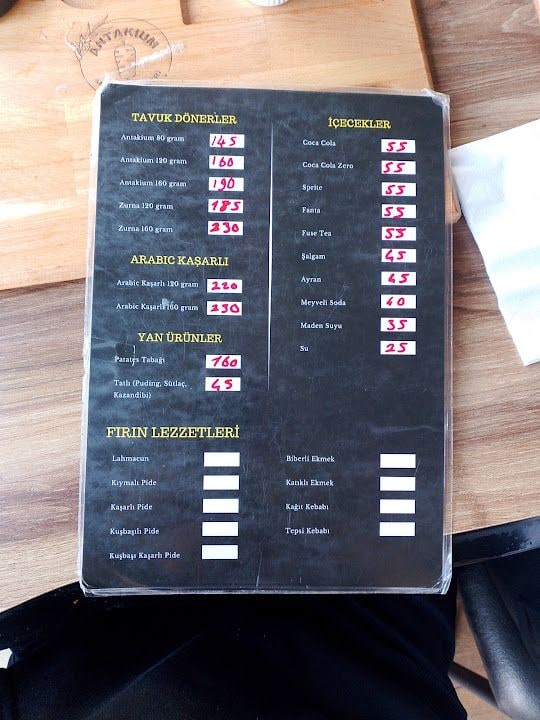 ANTAKIUM
TAVUK DÖNERLER
Antakium 80 gram 145
Antakium 120 gram 160
Antakium 160 gram 190
Zurna 120 gram 185
Zurna 160 gram 230
ARABIC KAŞARLI
Arabic Kaşarlı 120 gram 220
Arabic Kaşarlı 160 gram 250
YAN ÜRÜNLER
Patates Tabağı 160
Tatlı (Puding, Sütlaç, 45
Kazandibi)
İÇECEKLER
Coca Cola 55
Coca Cola Zero 55
Sprite 55
Fanta 55
Fuse Tea 55
Şalgam 45
Ayran 45
Meyveli Soda 40
Maden Suyu 35
Su 25
FIRIN LEZZETLERİ
Lahmacun
Kıymalı Pide
Kaşarlı Pide
Kuşbaşılı Pide
Kuşbaşı Kaşarlı Pide
Biberli Ekmek
Katıklı Ekmek
Kağıt Kebabı
Tepsi Kebabı